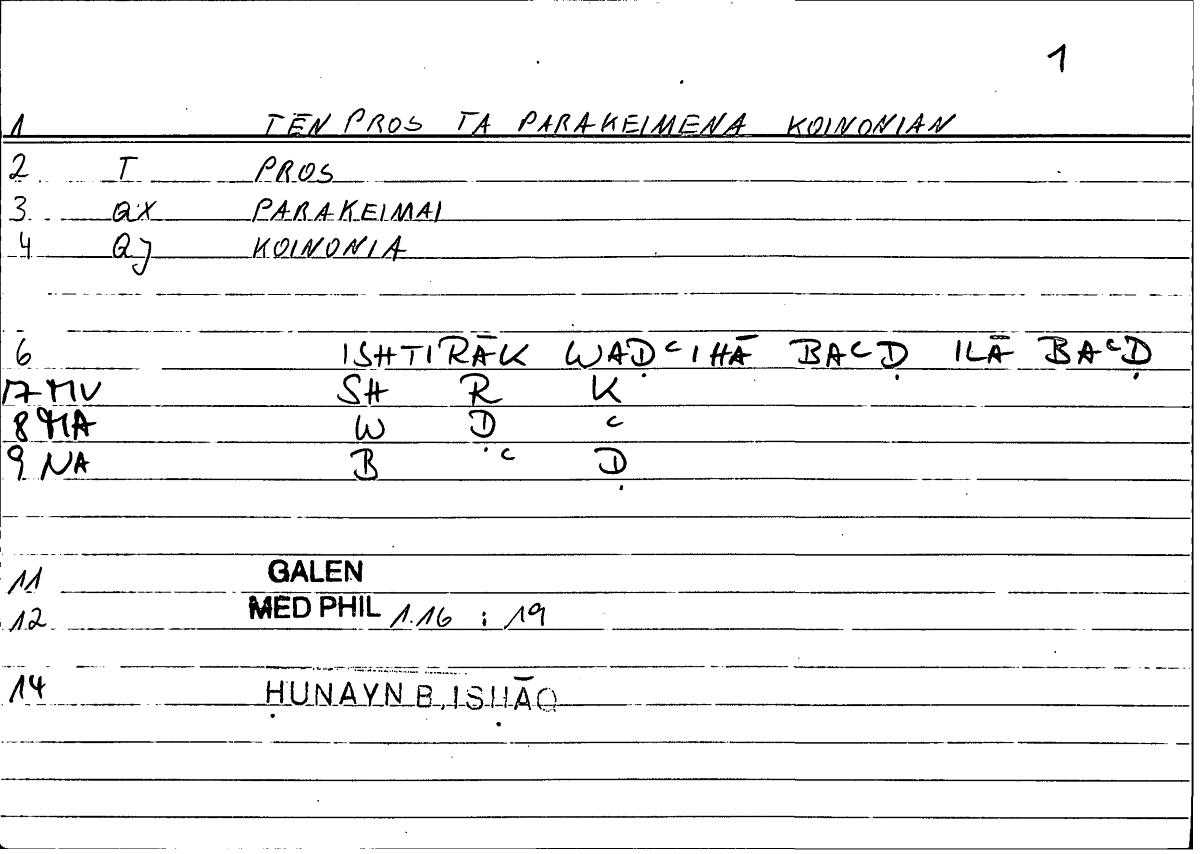 1
1 TĒN PROS TA PARAKEIMENA KOINONIAN
2 T PROS
3 QX PARAKEIMAI
4 QJ KOINONIA
6 ISHTIRĀK WAḌᶜIHĀ BAᶜḌ ILĀ BAᶜḌ
17 MV SH R K
8 MA W Ḍ ᶜ
9 NA B ᶜ Ḍ
11 GALEN
12 MED PHIL 1.16 ; 19
14 ḤUNAYN B. ISḤĀQ